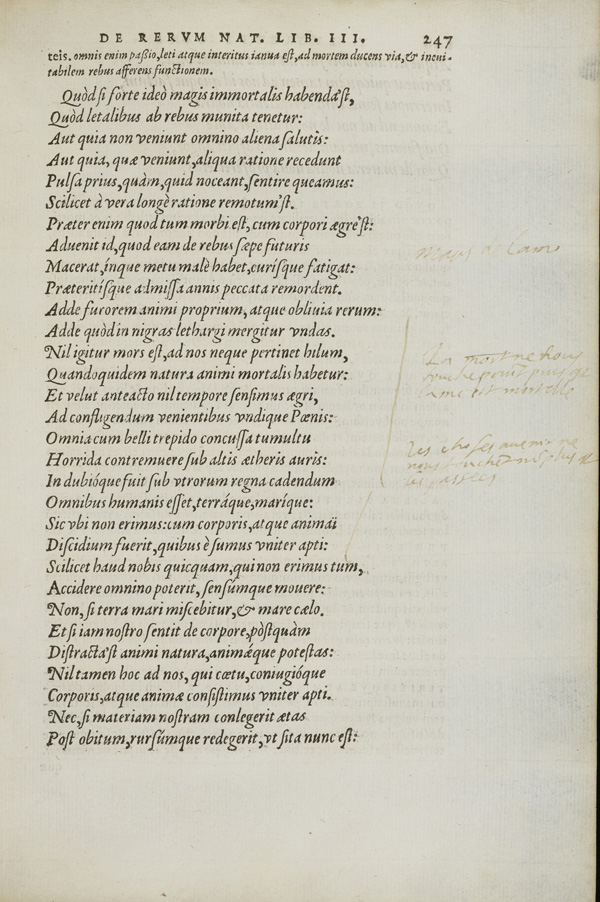 DE RERVM NAT. LIB. III. 247
teis. omnis enim paßio, leti atque interitus ianua est, ad mortem ducens via, & ineui-
tabilem rebus afferens functionem.
Quòd si forte ideò magis immortalis habenda'st,
Quòd letalibus ab rebus munita tenetur:
Aut quia non veniunt omnino aliena salutis:
Aut quia, quæ veniunt, aliqua ratione recedunt
Pulsa prius, quàm, quid noceant, sentire queamus:
Scilicet à vera longè ratione remotum'st.
Præter enim quod tum morbi est, cum corpori ægre'st:
Aduenit id, quod eam de rebus sæpe futuris
Macerat, inque metu malè habet, curísque fatigat:
Præteritísque admissa annis peccata remordent.
Adde furorem animi proprium, atque obliuia rerum:
Adde quòd in nigras lethargi mergitur vndas.
Nil igitur mors est, ad nos neque pertinet hilum,
Quandoquidem natura animi mortalis habetur:
Et velut anteacto nil tempore sensimus ægri,
Ad confligendum venientibus vndique Pœnis:
Omnia cum belli trepido concussa tumultu
Horrida contremuere sub altis ætheris auris:
In dubióque fuit sub vtrorum regna cadendum
Omnibus humanis esset, terráque, maríque:
Sic vbi non erimus: cum corporis, atque animaï
Discidium fuerit, quibus è sumus vniter apti:
Scilicet haud nobis quicquam, qui non erimus tum,
Accidere omnino poterit, sensúmque mouere:
Non, si terra mari miscebitur, & mare cælo.
Et si iam nostro sentit de corpore, pòstquàm
Distracta'st animi natura, animæque potestas:
Nil tamen hoc ad nos, qui cœtu, coniugióque
Corporis, atque animæ consistimus vniter apti.
Nec, si materiam nostram conlegerit ætas
Post obitum, rursúmque redegerit, vt sita nunc est:
de lame
La mort ne nous
touche point puis q
lame est mortelle
les choses